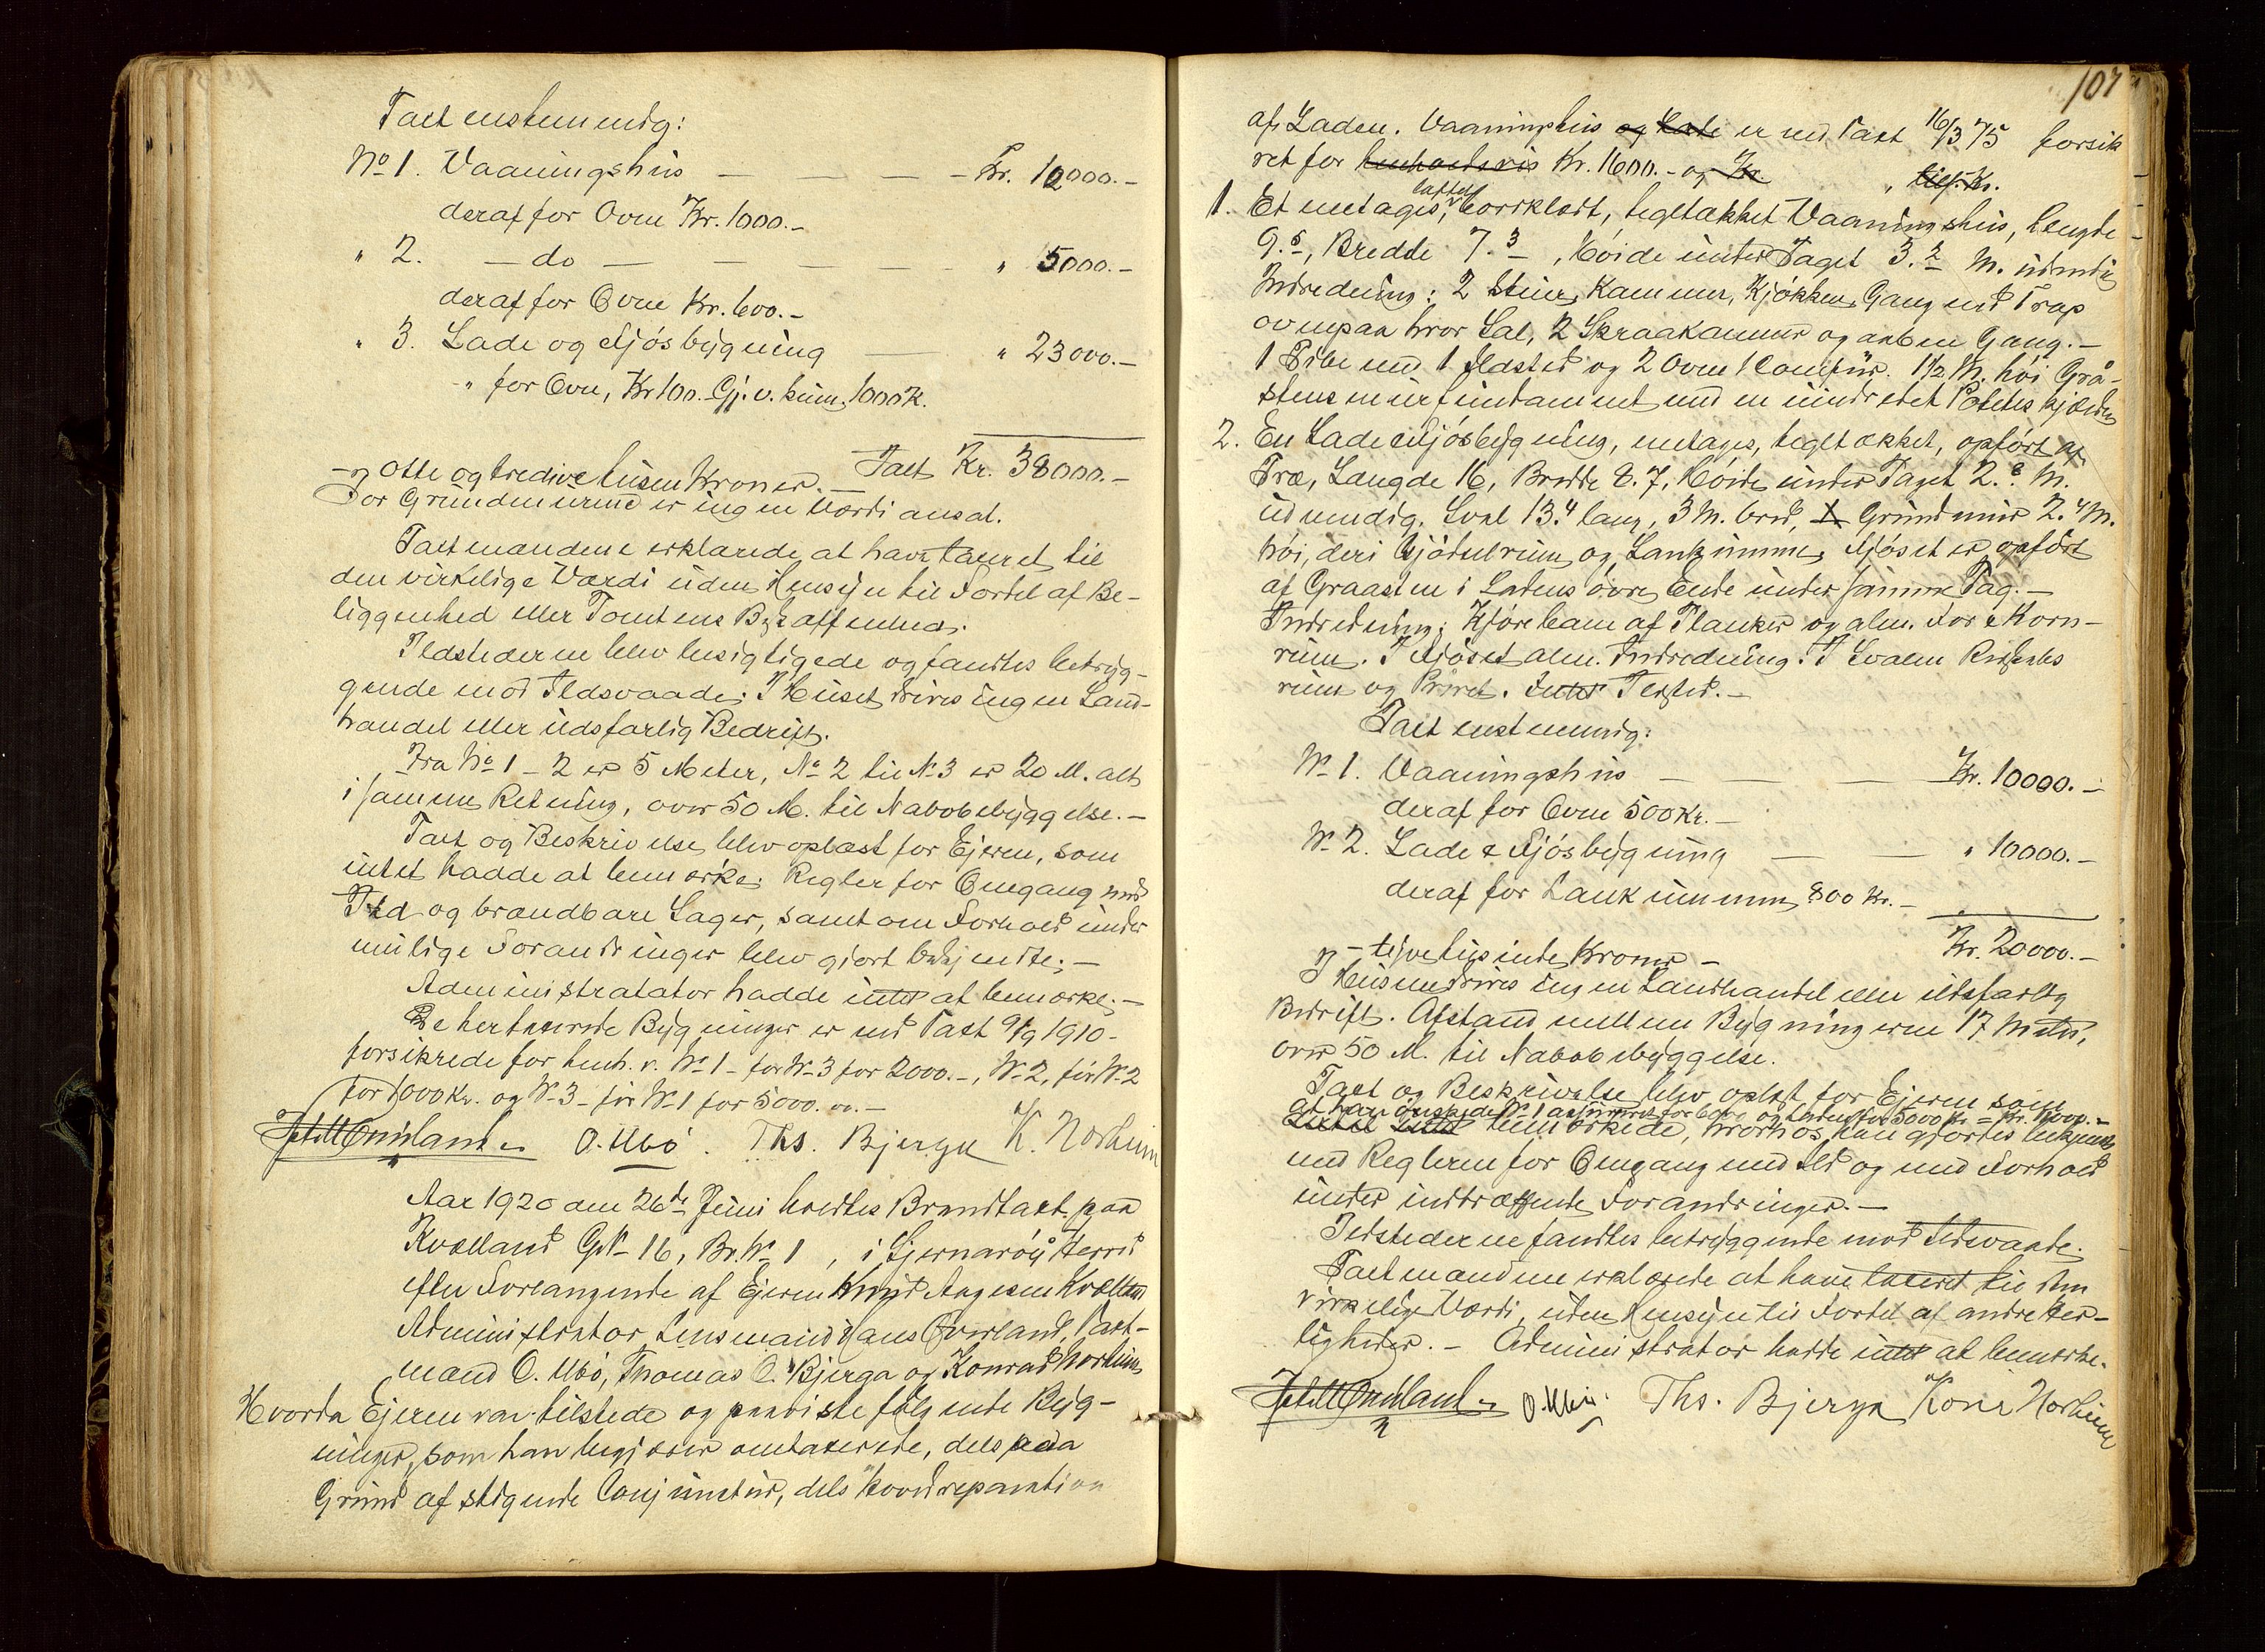 Taxt enstemmig:
No 1. Vaaningshus — — — Kr. 10000.-
deraf for Ovne Kr. 1000.-
" 2. — do — — — — " 5000.-
deraf for Ovne Kr. 600.-
" 3. Lade og Fjøsbygning — " 23000.-
-" for Ovn, Kr 100. Gj. v. kum. 1000 K.
Taxt Kr. 38000.-
otte og tredive tusen Kroner.
For Grundmurene er ingen Værdi ansat.
Taxtmændene erklærede at have taxeret til
den virkelige Værdi uden Hensyn til Fordel af Be-
liggenhed eller Tomtens Beskaffenhed.
Ildstederne blev besigtigede og fandtes betryg-
gende mod Ildsvaade. I Huset drives ingen Land-
handel eller ildsfarlig Bedrift.
Fra No 1 - 2 er 5 Meter, No 2 til No 3 er 20 M. alt
i samme Retning, over 50 M. til Nabobebyggelse.-
Taxt og Beskrivelse blev oplæst for Ejeren, som
intet hadde at bemærke. Regler for Omgang med
Ild og brændbare Sager, samt om Forhold under
mulige Forandringer blev gjort bekjendte.-
Administratator hadde intet at bemærke.-
De her taxerede Bygninger er ved Taxt 9/9 1910-
forsikrede for henh. v. No 1 - før No 3 for 2000.-, No 2, før No 2
for 1000 Kr. og No 3 - før No 1 for 5000.00.-
O. Ubø. Ths. Bjerga K. Norheim
Aar 1920 den 26de Juni holdtes Brandtaxt paa
Kvælland G.No 16, Br.No 1, i Sjernarøy Herred
efter Forlangende af Ejeren Knud Aagesen Kvælland
Administrator Lensmand Hans Overland, Taxt-
mænd O. Ubø, Thomas O. Bjerga og Konrad Norheim
Hvorda Ejeren var tilstede og paaviste følgende Byg-
ninger, som han begjærer omtaxerede, dels paa
Grund af stigende Conjunctur, dels hovedreparation
107
af Laden. Vaaningshus og Lade er ved Taxt 16/3 75 forsik
ret for henholdsvis Kr. 1600.- og Kr. " tils. Kr.
1. Et enetages, laftet, bordklædt, tegltækket Vaaningshus, Længde
9.5, Bredde 7.3, Høide under Taget 3.2 M. udvendig
Indredning: 2 Stuer, Kammer, Kjøkken, Gang med Trap
ovenpaa hvor Sal, 2 Skraakammer og aaben Gang.-
1 Pibe med 1 Ildsted og 2 Ovne 1 Comfur. 1 1/2 M. høi Grå-
stensmurfundament med en uindredet Potetes kjælder
2. En Lade & Fjøsbygning, enetages, tegltækket, opført af
Træ, Længde 16, Bredde 8.7, Høide under Taget 2.8 M.
udvendig. Sval 13.4 lang, 3 M. bred, Grundmur 2.4 M.
høi, deri Gjødselrum og Lankumme, Fjøset er opført
af Graasten i Ladens øvre Ende under samme Tag.-
Indredning: Kjørebane af Planker og alm. For & Korn-
rum. I Fjøset alm. Indredning. I Svalen Redskabs
rum og Privet. Intet Ildsted.-
Taxt enstemmig:
No 1. Vaaningshus — — — Kr. 10000.-
deraf for Ovne 500 Kr.-
No 2. Lade & Fjøsbygning — — " 10000.-
deraf for Lankummen 800 Kr.-
Kr. 20000.-
- tyve tusinde Kroner -
I Husene drives ingen Landhandel eller ildsfarlig
Bedrift. Afstand mellem Bygningerne 17 Meter,
over 50 M. til Nabobebyggelse.
Taxt og Beskrivelse blev oplæst for Ejeren som
at han ønskede No 1 assureret for 6000 og Laden for 5000 Kr = Kr. 11000.-
bemærkede, hvorhos han gjordes bekjendt
med Reglerne for Omgang med Ild og med Forhold
under indtræffende Forandringer.-
Ildstederne fandtes betryggende mod Ildsvaade.
Taxtmændene erklærede at have taxeret til den
virkelige Værdi, uden Hensyn til Fordel af andre Her-
ligheder.- Administrator hadde intet at bemærke.
O. Ubø. Ths. Bjerga Konr Norheim